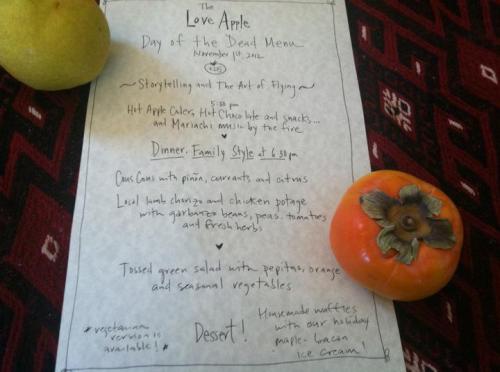 The
Love Apple
Day of the Dead Menu
November 1st, 2012
~ Storytelling and The Art of Flying ~
5:00 pm
Hot Apple Cider, Hot Chocolate and snacks...
and Mariachi music by the fire
Dinner, Family Style at 6:30 pm
Cous Cous with piñon, currants and citrus
Local lamb chorizo and chicken potage
with garbanzo beans, peas, tomatoes
and fresh herbs
Tossed green salad with pepitas, orange
and seasonal vegetables
*vegetarian
version is
available!*
Dessert!
Housemade waffles
with our holiday
maple-bacon
ice cream!